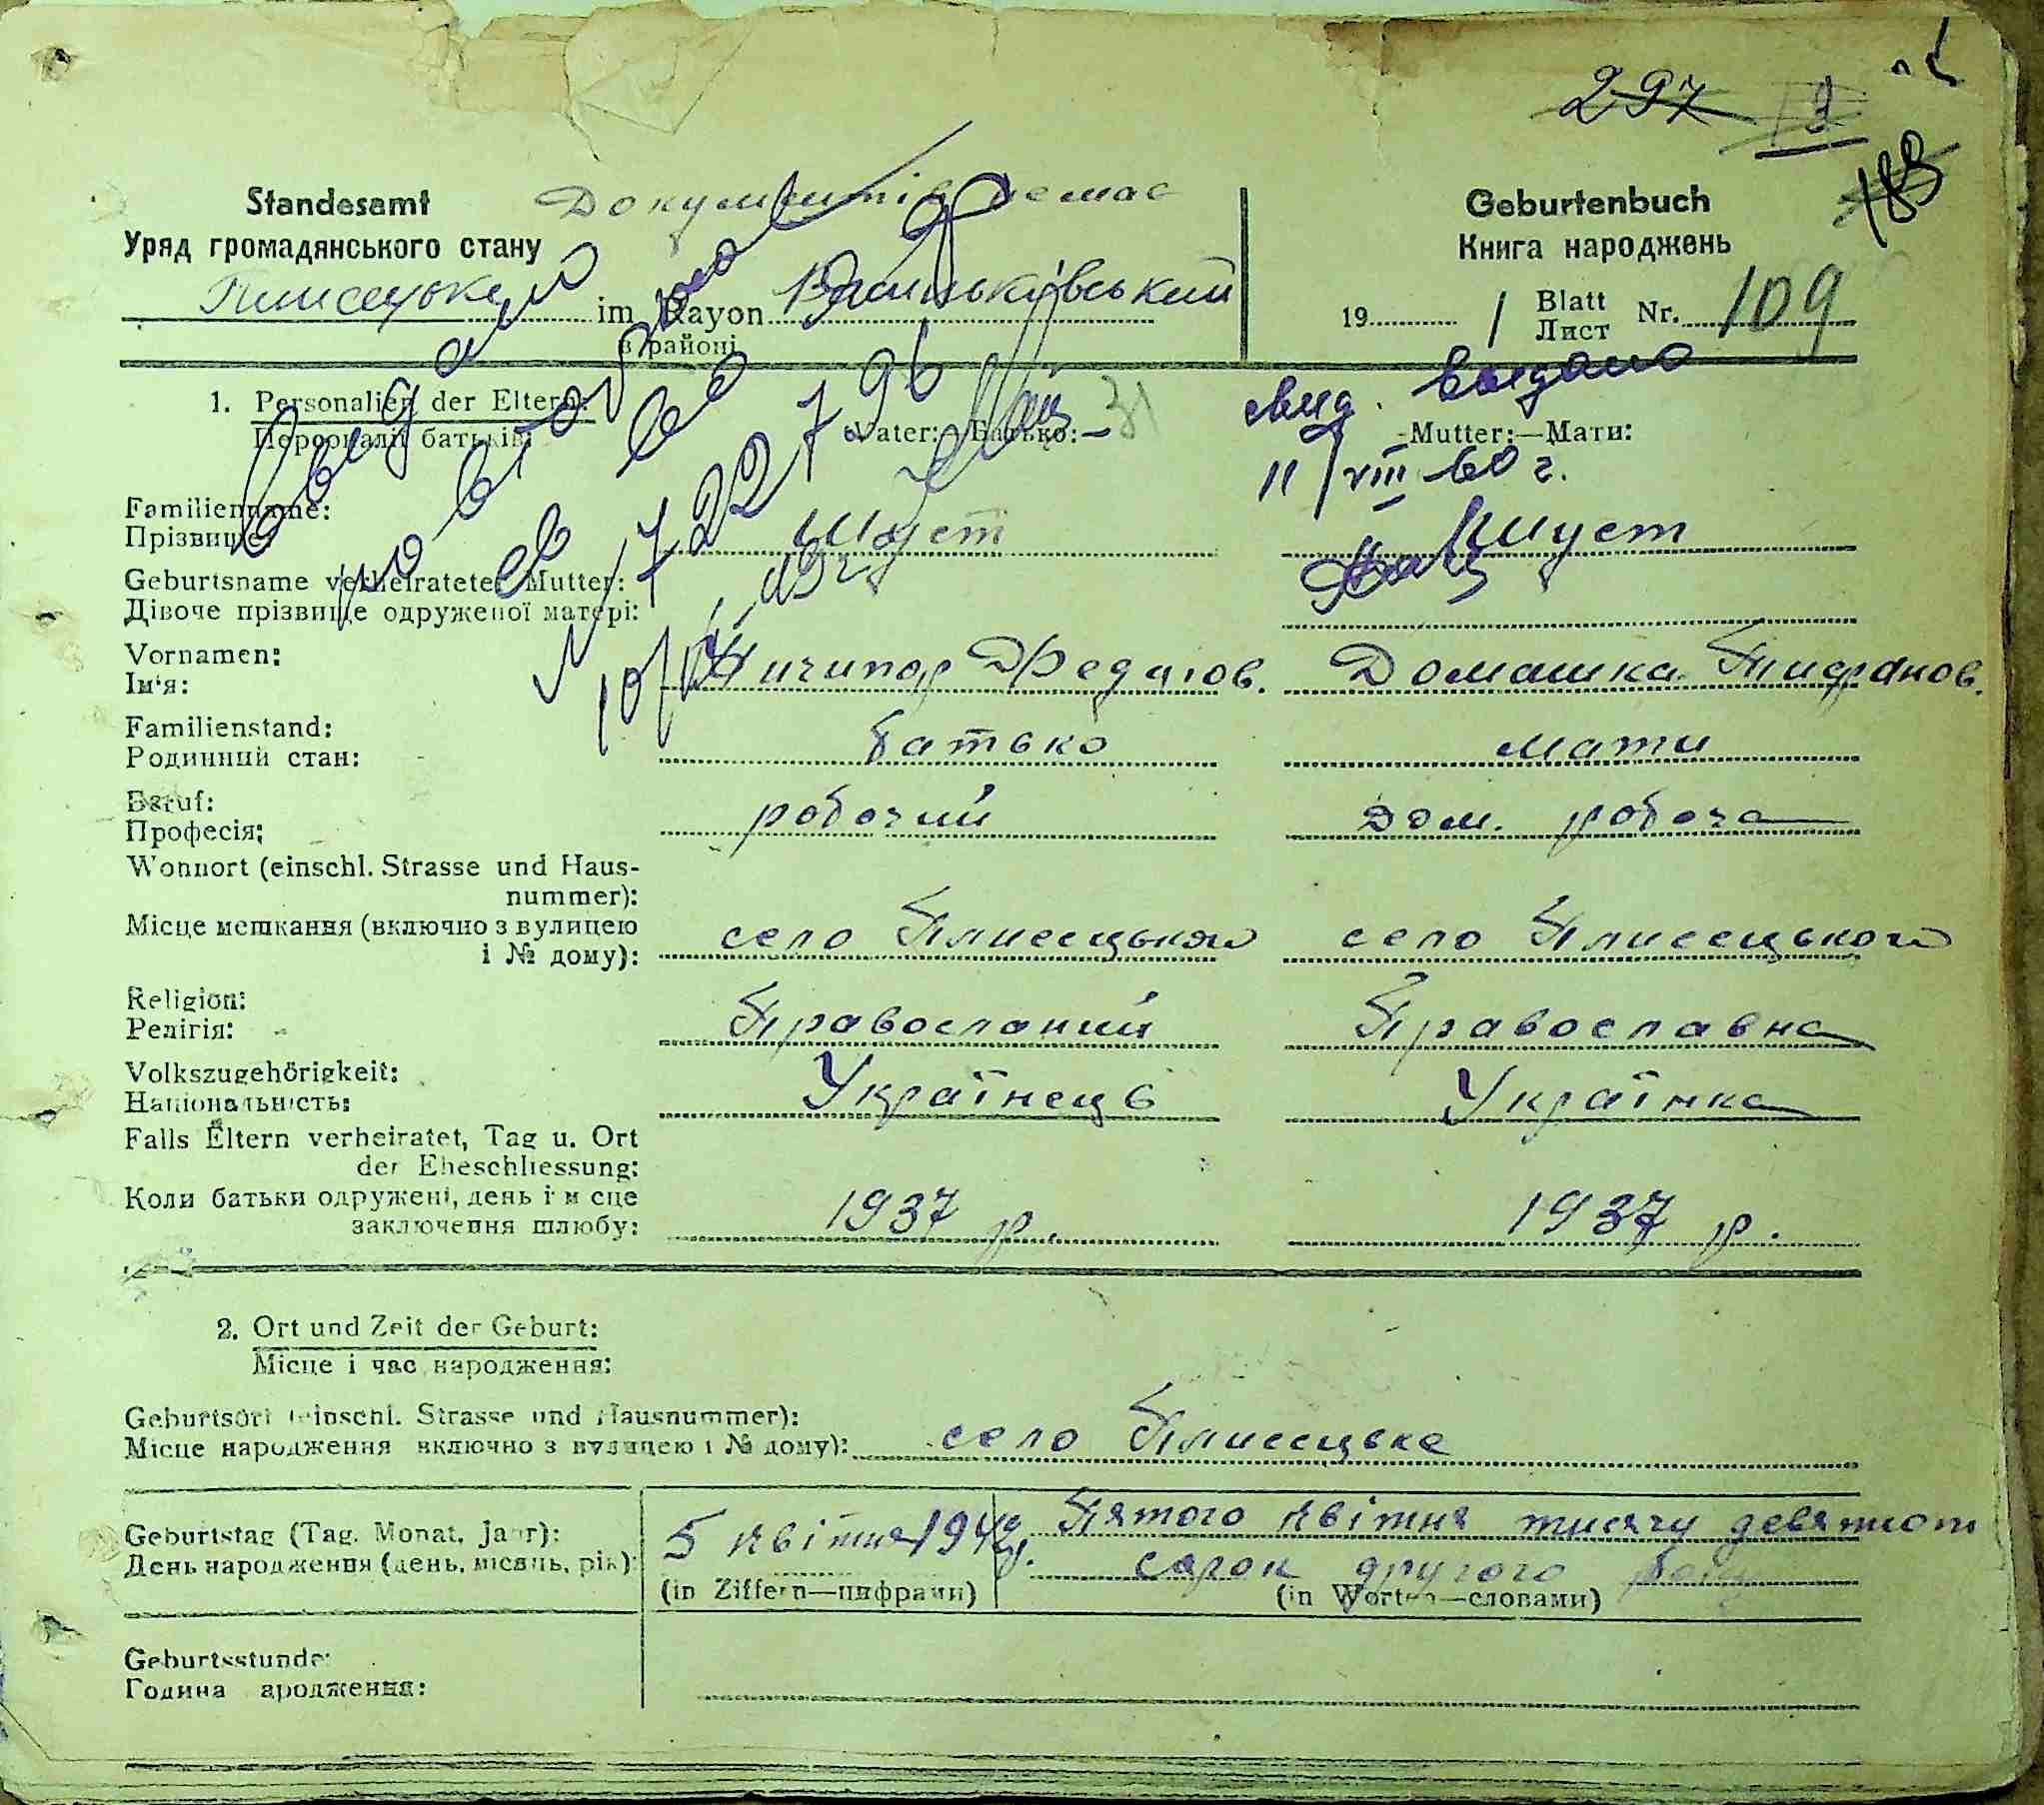 297
183
Standesamt Документів немає
Уряд громадянського стану
im Rayon Васильківський
в районі
Geburtenbuch
Книга народжень
19 Blatt Nr. 109
Лист
1. Personalien der Eltern:
Персоналії батьків:
Vater: Батько:— 31
Mutter:—Мати:
свид. выдано
11/VIII 60 г.
Выдано
повторное
св
№ 722796
Familienname:
Прізвище: Шуст Шуст
Geburtsname verheirateter Mutter:
Дівоче прізвище одруженої матері:
Vornamen:
Ім'я: Ничипор Федоров. Домашка Тифанов.
Familienstand:
Родинний стан: батько мати
Beruf:
Професія; робочий дом. робоча
Wohnort (einschl. Strasse und Haus-
nummer):
Місце мешкання (включно з вулицею
і № дому): село Плисецького село Плисецького
Religion:
Релігія: Православний Православна
Volkszugehörigkeit:
Національність: Українець Українка
Falls Eltern verheiratet, Tag u. Ort
der Eheschliessung:
Коли батьки одружені, день і місце
заключення шлюбу: 1937 р. 1937 р.
2. Ort und Zeit der Geburt:
Місце і час народження:
Geburtsort (einschl. Strasse und Hausnummer):
Місце народження включно з вулицею і № дому): село Плисецьке
Geburtstag (Tag, Monat, Jahr):
День народження (день, місяць, рік): 5 квітня 1942 р. Пятого квітня тисячу девятсот
сорок другого року
(in Ziffern—цифрами) (in Worten—словами)
Geburtsstunde:
Година ародження: